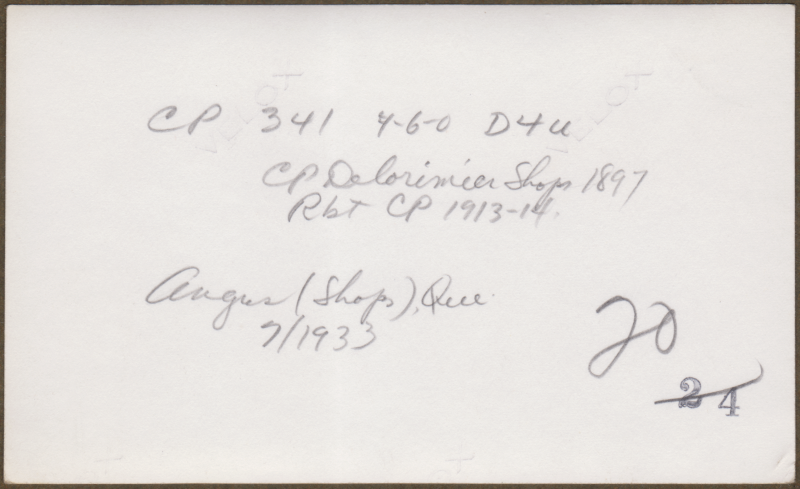 CP 341 4-6-0 D4u
CP Delorimier Shops 1897
Rbt CP 1913-14.
Angus (Shops), Que.
7/1933
20
24
VELOX
VELOX